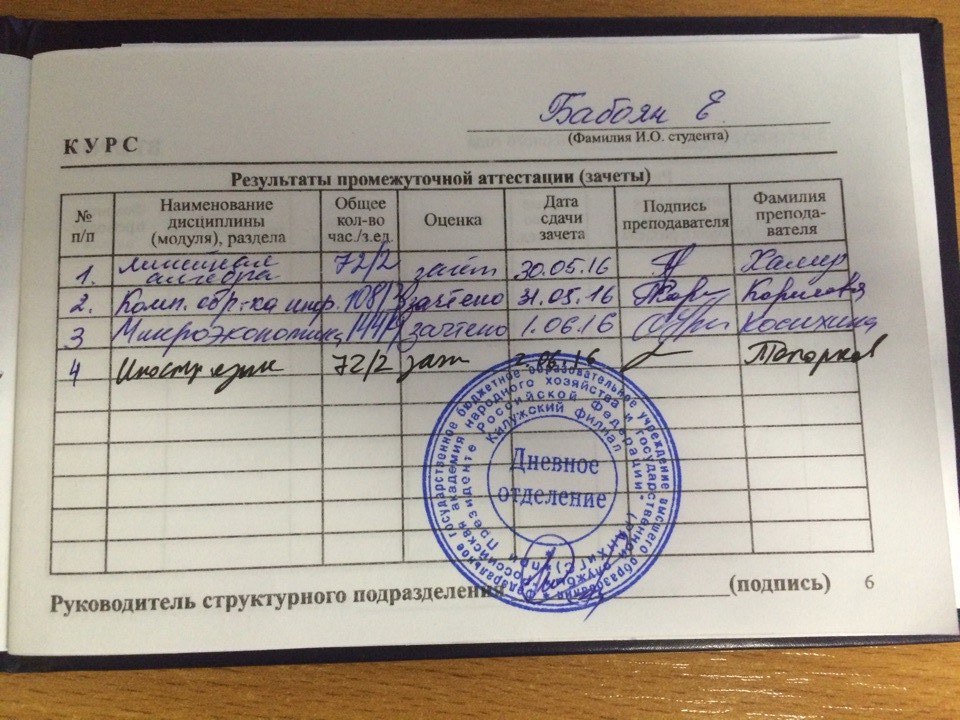 Бабоян Е
КУРС
(Фамилия И.О. студента)
Результаты промежуточной аттестации (зачеты)
№ п/п Наименование дисциплины (модуля), раздела Общее кол-во час./з.ед. Оценка Дата сдачи зачета Подпись преподавателя Фамилия препода- вателя
1. Линейная алгебра 72/2 зачёт 30.05.16
2. Комп. обр-ка инф. 108/3 зачтено 31.05.16
3 Микроэкономика 144/4 зачтено 1.06.16 Косихина
4 Иностр язык 72/2 зач 2.06.16 Топорков
Федеральное государственное бюджетное образовательное учреждение высшего образования
Российская академия народного хозяйства и государственной службы
при Президенте Российской Федерации
Калужский филиал
Дневное
отделение
Руководитель структурного подразделения (подпись) 6